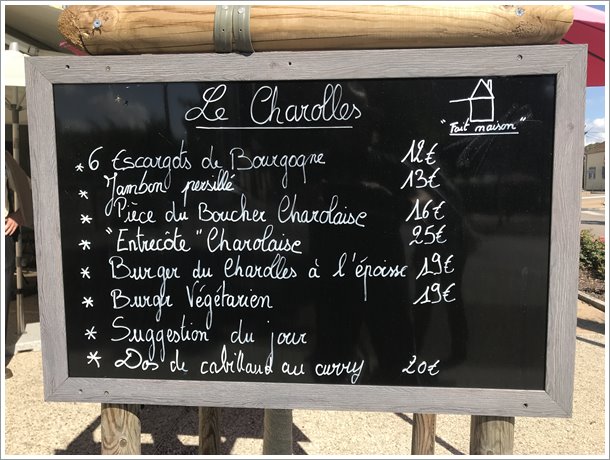 Le Charolles
"Fait maison"
* 6 Escargots de Bourgogne 12€
* Jambon persillé 13€
* Pièce du Boucher Charolaise 16€
* "Entrecôte" Charolaise 25€
* Burger du Charolles à l'époisse 19€
* Burgr Végétarien 19€
* Suggestion du jour
* Dos de cabillaud au curry 20€